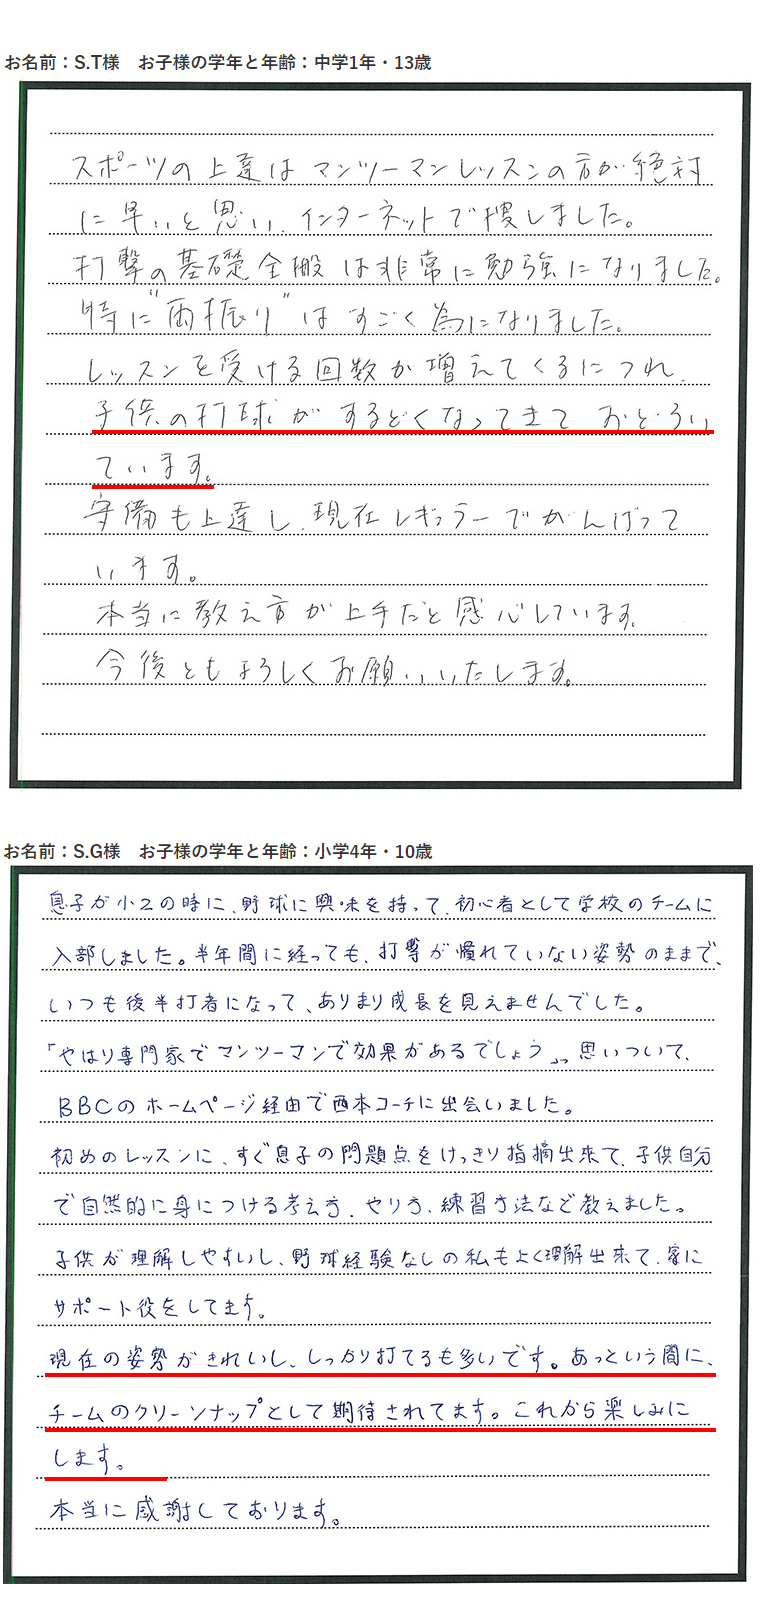 お名前：S.T様　お子様の学年と年齢：中学1年・13歳
スポーツの上達はマンツーマンレッスンの方が絶対
に早いと思い、インターネットで捜しました。
打撃の基礎全般は非常に勉強になりました。
特に"両振り"はすごく為になりました。
レッスンを受ける回数が増えてくるにつれ、
子供の打球がするどくなってきて おどろい
ています。
守備も上達し、現在レギュラーでがんばって
います。
本当に教え方が上手だと感心しています。
今後ともよろしくお願いいたします。
お名前：S.G様　お子様の学年と年齢：小学4年・10歳
息子が小2の時に、野球に興味を持って、初心者として学校のチームに
入部しました。半年間に経っても、打撃が慣れていない姿勢のままで、
いつも後半打者になって、あまり成長を見えませんでした。
「やはり専門家でマンツーマンで効果があるでしょう」っ思いついて、
BBCのホームページ経由で西本コーチに出会いました。
初めのレッスンに、すぐ息子の問題点をはっきり指摘出来て、子供自分
で自然的に身につける考え方、やり方、練習方法など教えました。
子供が理解しやすいし、野球経験なしの私もよく理解出来て、家に
サポート役をしてます。
現在の姿勢がきれいし、しっかり打てるも多いです。あっという間に、
チームのクリーンナップとして期待されてます。これから楽しみに
します。
本当に感謝しております。